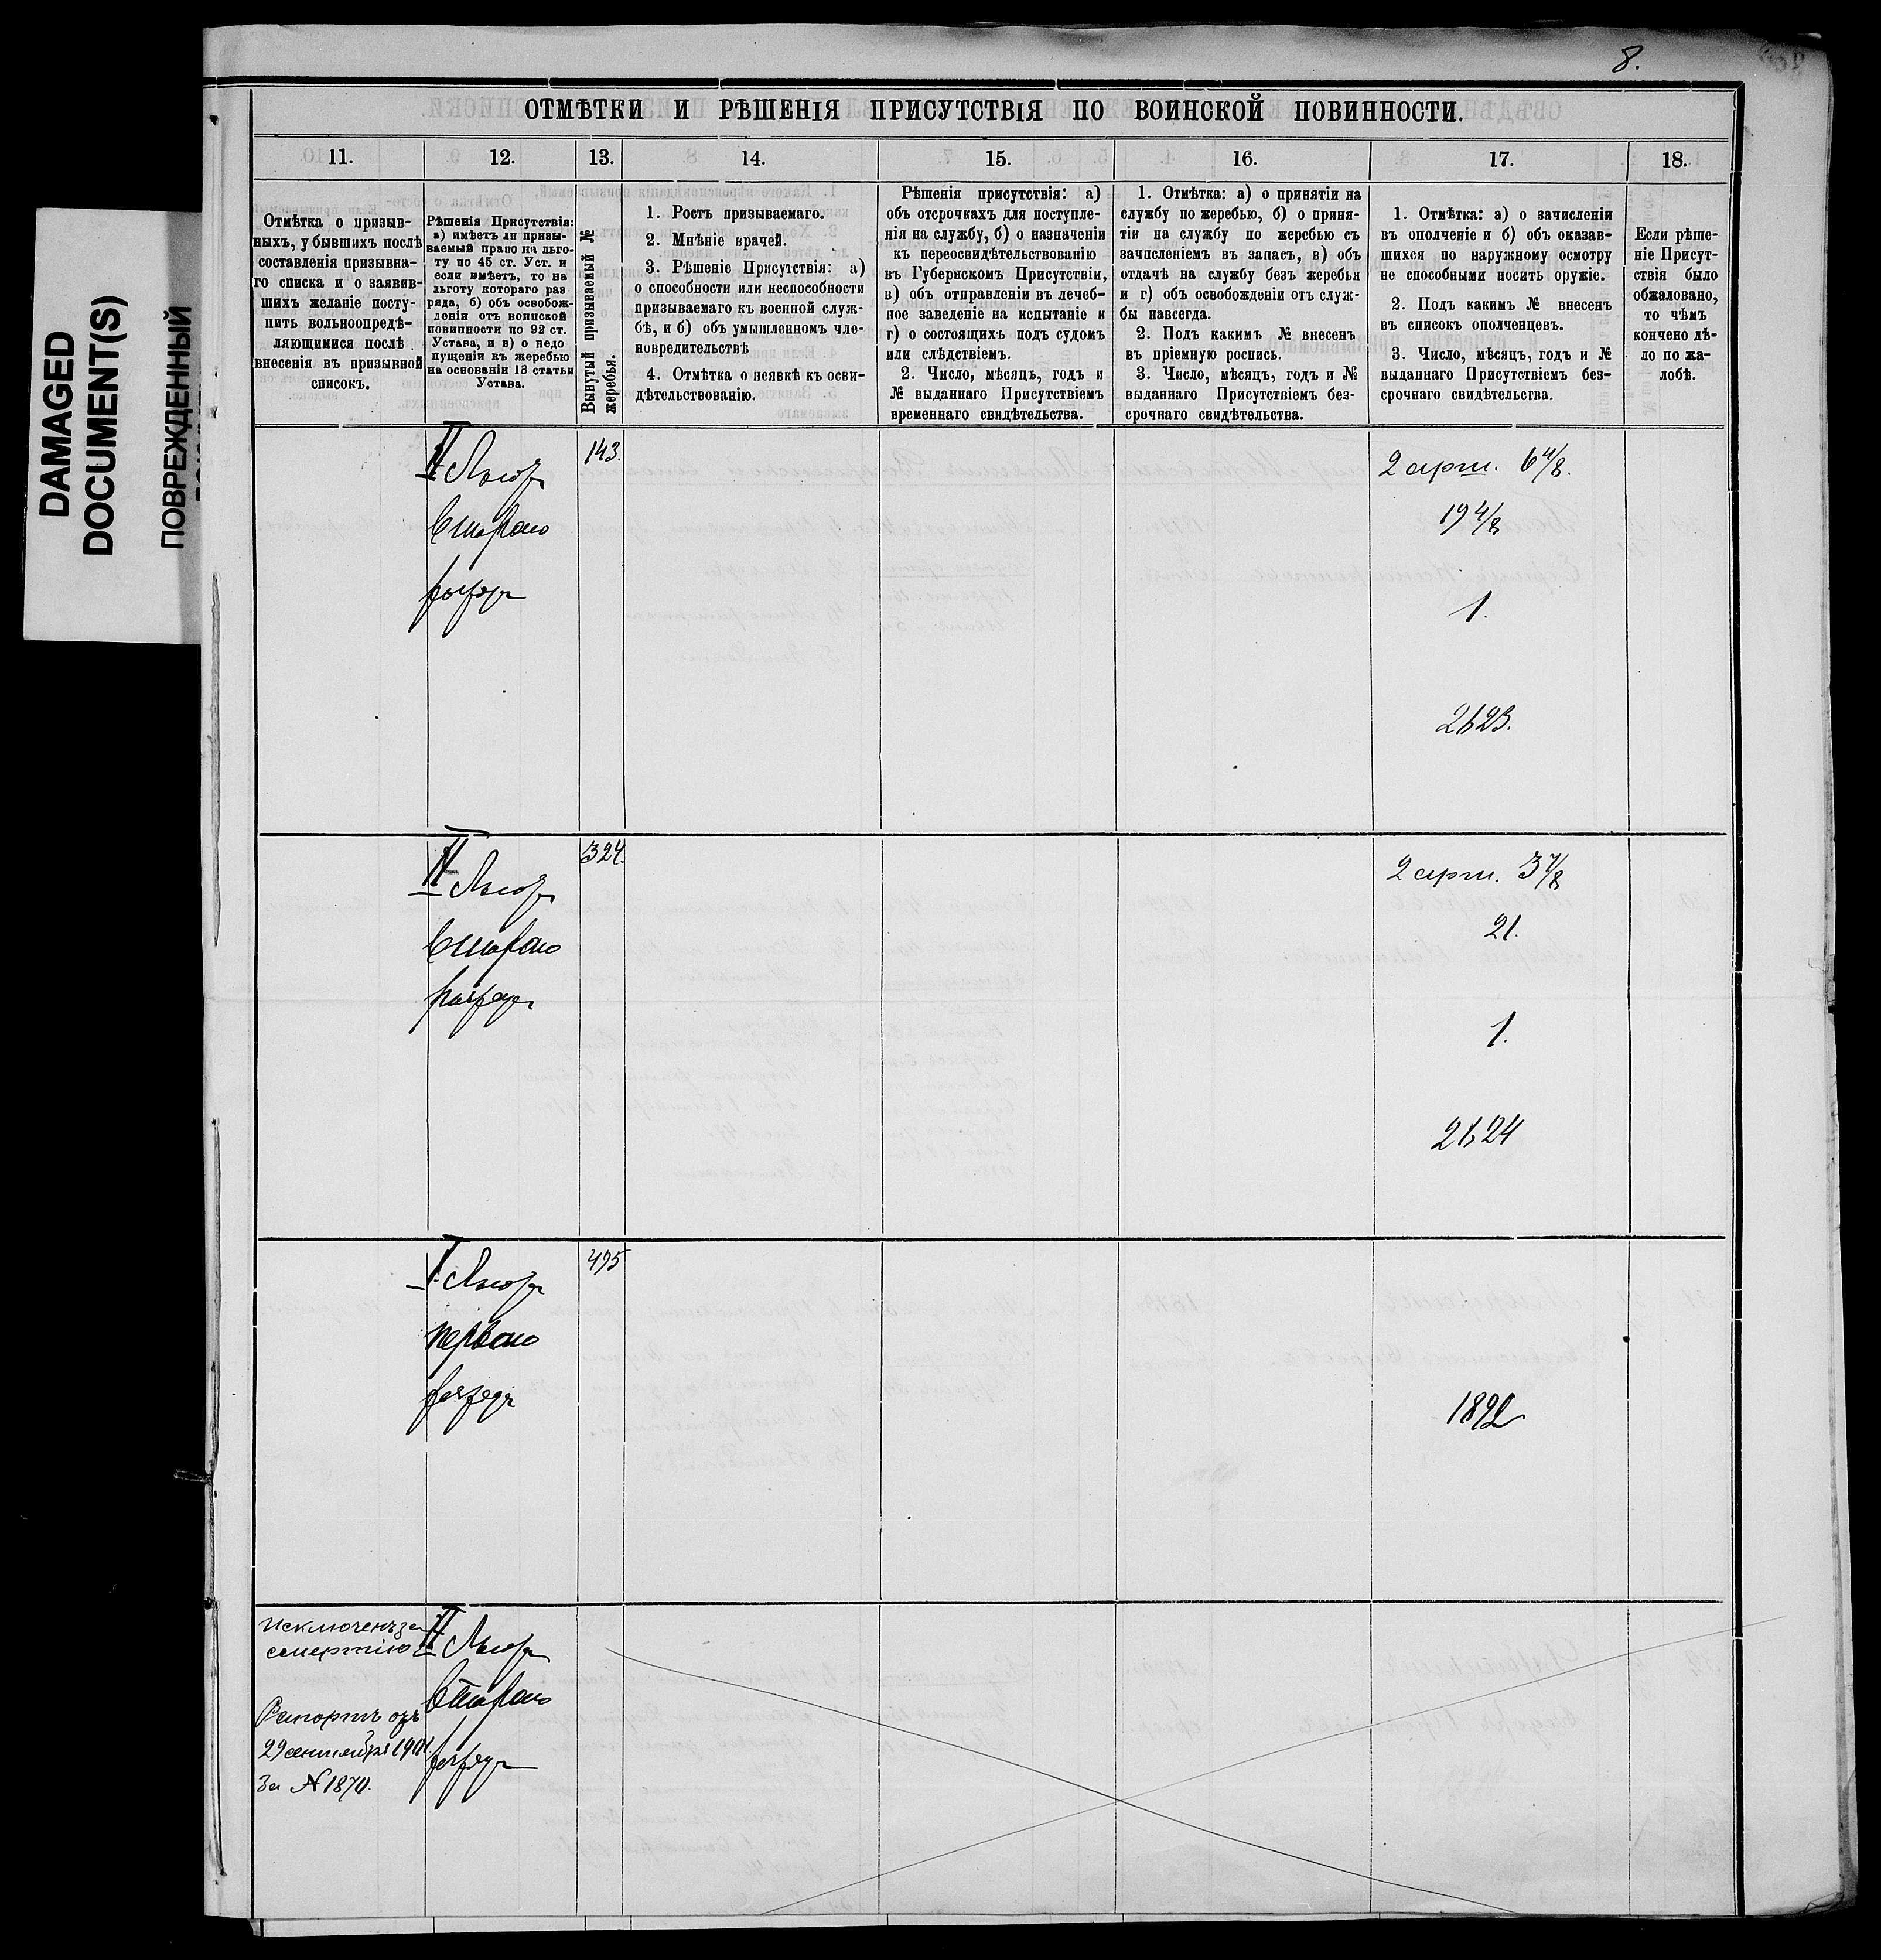 8.
DAMAGED
DOCUMENT(S)
ПОВРЕЖДЕННЫЙ
ОТМѢТКИ И РѢШЕНІЯ ПРИСУТСТВІЯ ПО ВОИНСКОЙ ПОВИННОСТИ.
11.
12.
13.
14.
15.
16.
17.
18.
Отмѣтка о призыв-
ныхъ, у бывшихъ послѣ
составленія призывна-
го списка и о заявив-
шихъ желаніе посту-
пить вольноопредѣ-
ляющимися послѣ
внесенія въ призывной
списокъ.
Рѣшенія Присутствія:
а) имѣетъ ли призы-
ваемый право на льго-
ту по 45 ст. Уст. и
если имѣетъ, то на
льготу котораго раз
ряда, б) объ освобож-
деніи отъ воинской
повинности по 92 ст.
Устава, и в) о недо
пущеніи къ жеребью
на основаніи 13 статьи
Устава.
Вынутый призываемый №
жеребья.
1. Ростъ призываемаго.
2. Мнѣніе врачей.
3. Рѣшеніе Присутствія: а)
о способности или неспособности
призываемаго къ военной служ-
бѣ, и б) объ умышленномъ чле-
новредительствѣ
4. Отмѣтка о неявкѣ къ осви-
дѣтельствованію.
Рѣшенія присутствія: а)
объ отсрочкахъ для поступле-
нія на службу, б) о назначеніи
къ переосвидѣтельствованію
въ Губернскомъ Присутствіи,
в) объ отправленіи въ лечеб-
ное заведеніе на испытаніе и
г) о состоящихъ подъ судомъ
или слѣдствіемъ.
2. Число, мѣсяцъ, годъ и
№ выданнаго Присутствіемъ
временнаго свидѣтельства.
1. Отмѣтка: а) о принятіи на
службу по жеребью, б) о приня-
тіи на службу по жеребью съ
зачисленіемъ въ запасъ, в) объ
отдачѣ на службу безъ жеребья
и г) объ освобожденіи отъ служ-
бы навсегда.
2. Подъ какимъ № внесенъ
въ пріемную роспись.
3. Число, мѣсяцъ, годъ и №
выданнаго Присутствіемъ без-
срочнаго свидѣтельства.
1. Отмѣтка: а) о зачисленіи
въ ополченіе и б) объ оказав-
шихся по наружному осмотру
не способными носить оружіе.
2. Подъ какимъ № внесенъ
въ списокъ ополченцевъ.
3. Число, мѣсяцъ, годъ и №
выданнаго Присутствіемъ без-
срочнаго свидѣтельства.
Если рѣше-
ніе Присут-
ствія было
обжаловано,
то чѣмъ
кончено дѣ-
ло по жа-
лобѣ.
II Льгот
Втораго
разряд
143.
2 арш. 6 4/8.
19 4/8
1.
2623.
II Льгот
Втораго
разряд
324.
2 арш. 3 7/8
21.
1.
2624
I Льгот
перваго
разряд
495
1892
Исключенъ за
смертію
Рапортъ отъ
29 сентября 1901.
За № 1870.
II Льгот
Втораго
разряд